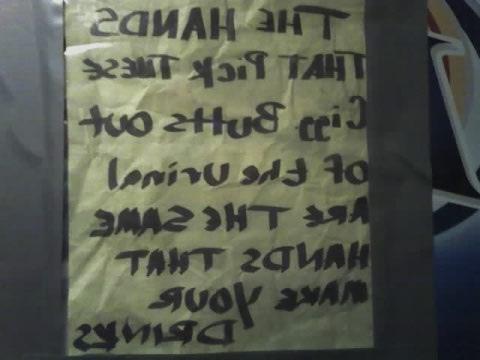 THE HANDS
THAT PicK THESE
Cigg. Butts out
of the urinal
ARE THE SAME
HANDS THAT
MAKE YOUR
DRINKS